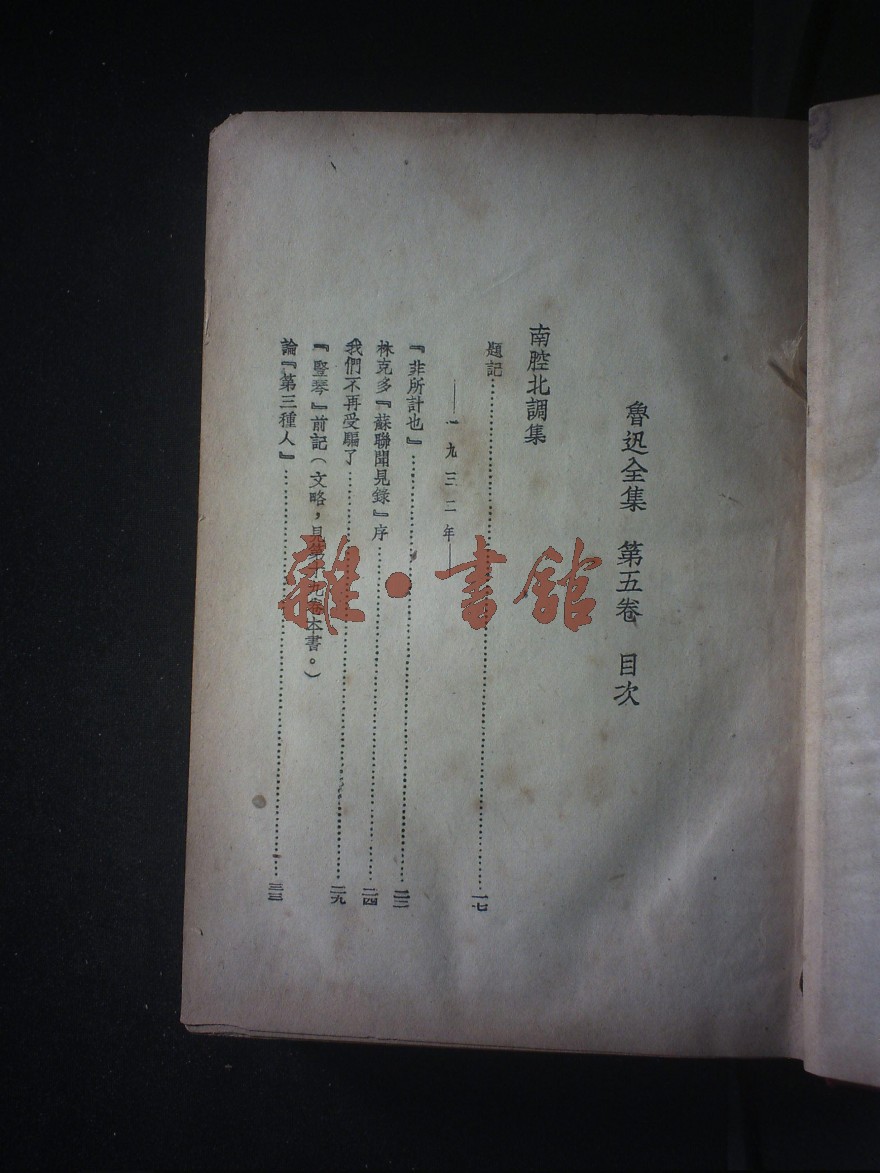 魯迅全集　第五卷　目次
南腔北調集
題記……一七
——一九三二年——
『非所計也』……二二
林克多『蘇聯聞見錄』序……二四
我們不再受騙了……二九
『豎琴』前記（文略，見第十九卷本書。）
論『第三種人』……三三
雜·書館